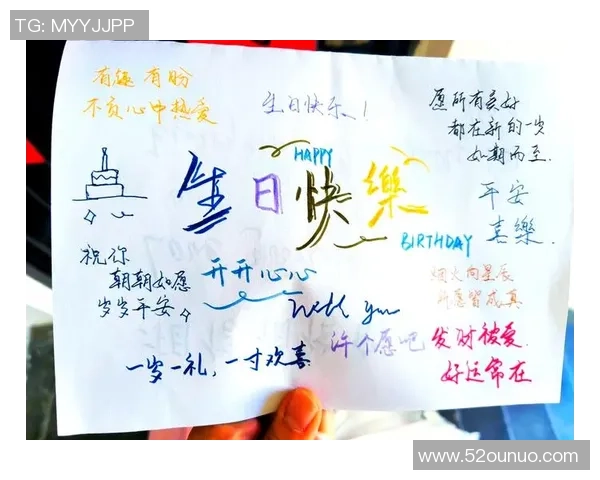 TG: MYYJJPP
有趣 有盼
不负心中热爱
生日快乐!
愿所有美好
都在新的一岁
如期而至.
HAPPY
生日快樂
BIRTHDAY
平安
喜樂.
祝你
朝朝如愿
岁岁平安
开开心心
烟火向星辰
所愿皆成真
with you
许个愿吧
发财被爱
好运常在
一岁一礼,一寸欢喜
www.52ounuo.com